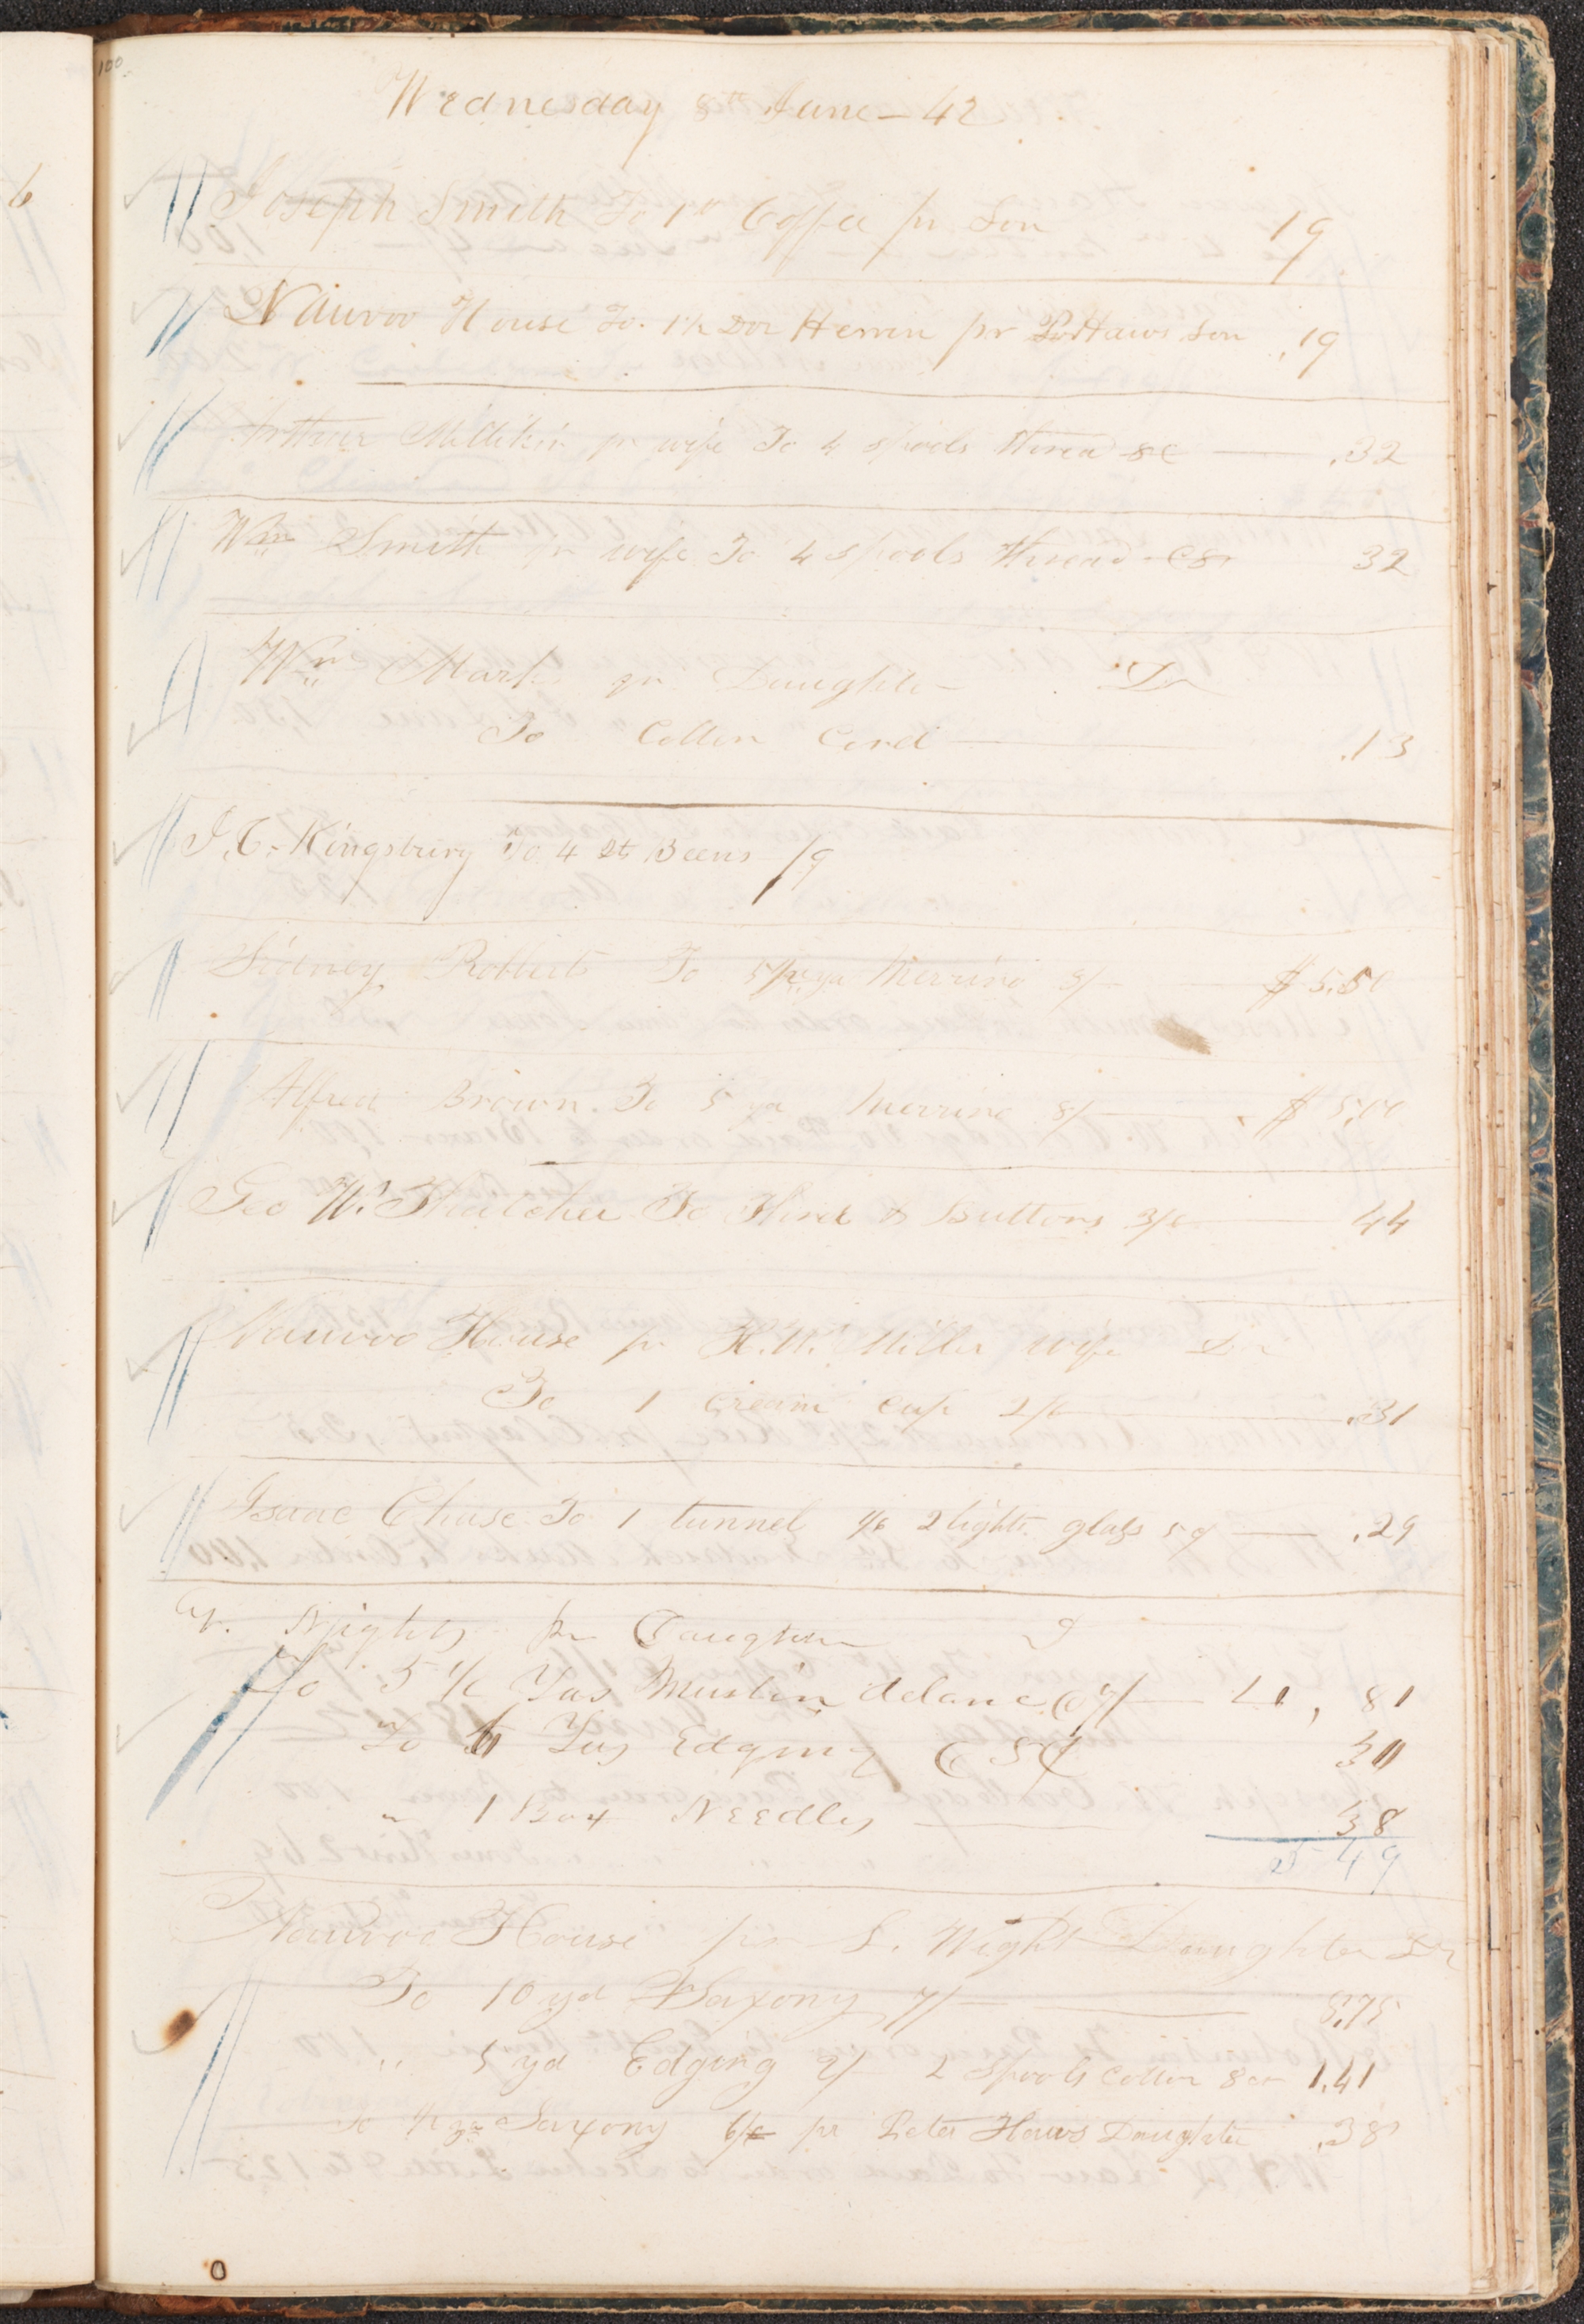 100
Wednesday 8th June - 42
Joseph Smith To 1 lb Coffee pr Son 19
Nauvoo House To 1½ Doz Herren pr P. Haws Son .19
Arthur Millikin pr wife To 4 spools thread 8c .32
Wm Smith pr wife To 4 spools thread 32
Wm Marks pr Daughter Dr
To Cotton Cord .13
J. C. Kingsbury To 4 Qts Beens 19
Sidney Robberts To 5½ yd Merrino 8/ $ 5.50
Alfred Brown. To 5 yd Merrino 8/ $ 5.00
Geo W. Thatcher To Thred & Buttons 44
Nauvoo House pr H. W. Miller wife Dr
To 1 cream cup 2/6 .31
Isaac Chase To 1 tunnel 1/6 2 lights glass 5 .29
pr Daugter
To 5 ½ Yds Muslin delane @ 7/ 4, 81
To 6 Yds Edging @ 5¢ 30
" 1 Box Needles 38
5 49
Nauvoo House pr L. Wight Daughter Dr
To 10 yd Saxony 7/ 8.75
" 5 yd Edging 2/ 2 spools cotton 8ct 1.41
To ½ yd Saxony 6/ pr Peter Haws Daughter .38
6